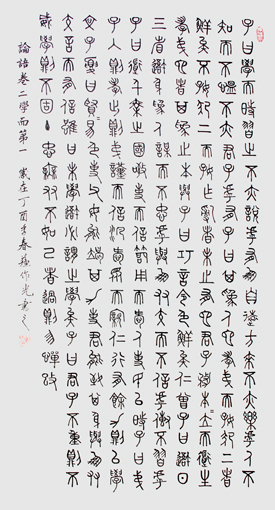 子曰學而時習之不亦說乎有朋自遠方來不亦樂乎人不
知而不慍不亦君子乎有子曰其為人也孝弟而好犯上者
鮮矣不好犯上而好作亂者未之有也君子務本〻立而道生
孝弟也者其為仁之本與子曰巧言令色鮮矣仁曾子曰吾日
三省吾身為人謀而不忠乎與朋友交而不信乎傳不習乎
子曰道千乘之國敬事而信節用而愛人使民以時子曰弟
子入則孝出則弟謹而信汎愛眾而親仁行有餘力則以學
文子夏曰賢〻易色事父母能竭其力事君能致其身與朋
友交言而有信雖曰未學吾必謂之學矣子曰君子不重則不
威學則不固主忠信無友不如己者過則勿憚改
論語卷二學而第一 歲在丁酉